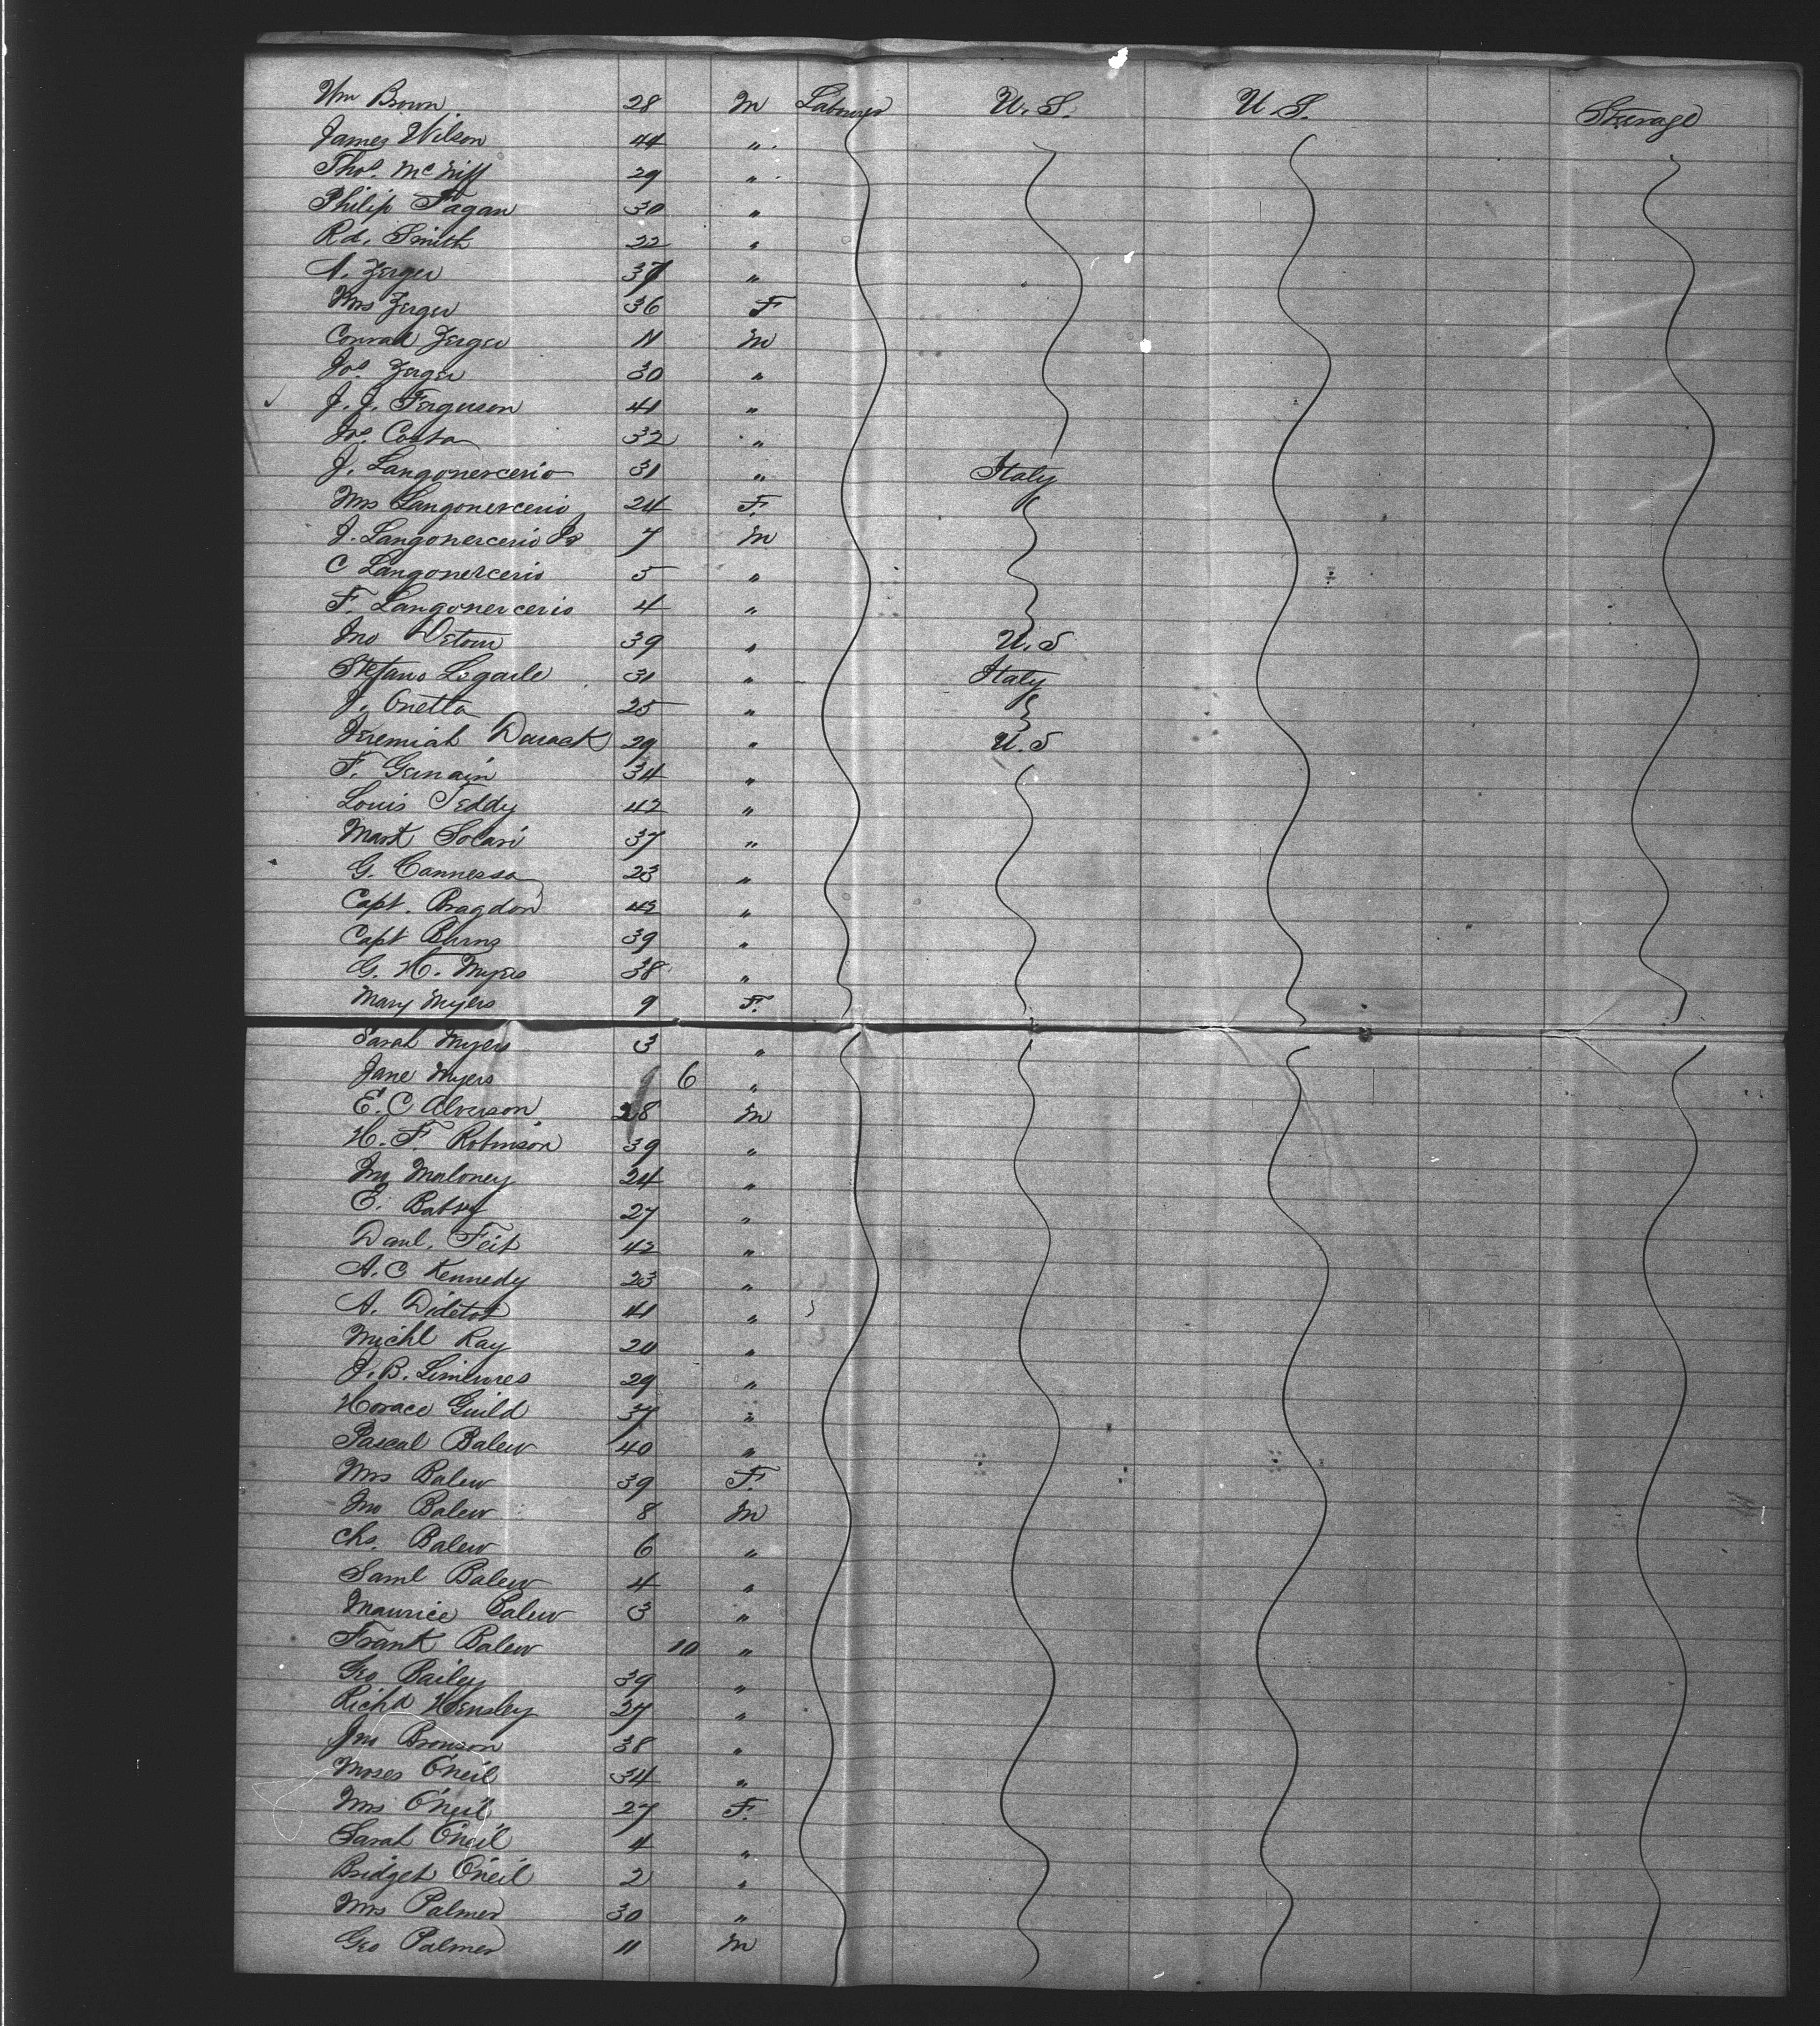 Wm Brown 28 M Labourer U.S. U.S. Steerage
James Wilson 44 " 
Thos. McNiff 29 "
Philip Fagan 30 "
Rd. Smith 22 "
A. Zerger 37 "
Mrs Zerger 36 F
Conrad Zerger 11 M
Jos. Zerger 30 "
J. J. Ferguson 41 "
Jos. Costa 32 "
J. Langonercerio 31 " Italy
Mrs Langonercerio 24 F.
J. Langonercerio Jr 7 M
C Langonercerio 5 "
F. Langonercerio 4 "
Jno Detour 39 " U.S
Stefano Legarle 31 " Italy
J. Onetta 25 "
Jeremiah Durack 29 " U.S
F. Germain 34 "
Louis Teddy 42 "
Mark Solari 37 "
G. Cannessa 23 "
Capt. Bragdon 42 "
Capt Burns 39 "
G. H. Myers 38 "
Mary Myers 9 F.
Sarah Myers 3 "
Jane Myers 6 "
E. C Alverson 28 M
H. F. Robinson 39 "
Jno Maloney 24 "
E. 27 "
Danl. Feit 42 "
A. C Kennedy 23 "
A. Didetot 41 "
Michl Ray 20 "
J. B. 29 "
Horace Guild 37 "
Pascal Balew 40 "
Mrs Balew 39 F.
Jno Balew 8 M
Chs. Balew 6 "
Saml Balew 4 "
Maurice Balew 3 "
Frank Balew 10 "
Geo Bailey 39 "
Richd Hensley 27 "
Jno Bronson 38 "
Moses O'Neil 34 "
Mrs O'Neil 27 F.
Sarah O'Neil 4 "
Bridget O'Neil 2 "
Mrs Palmer 30 "
Geo Palmer 11 M